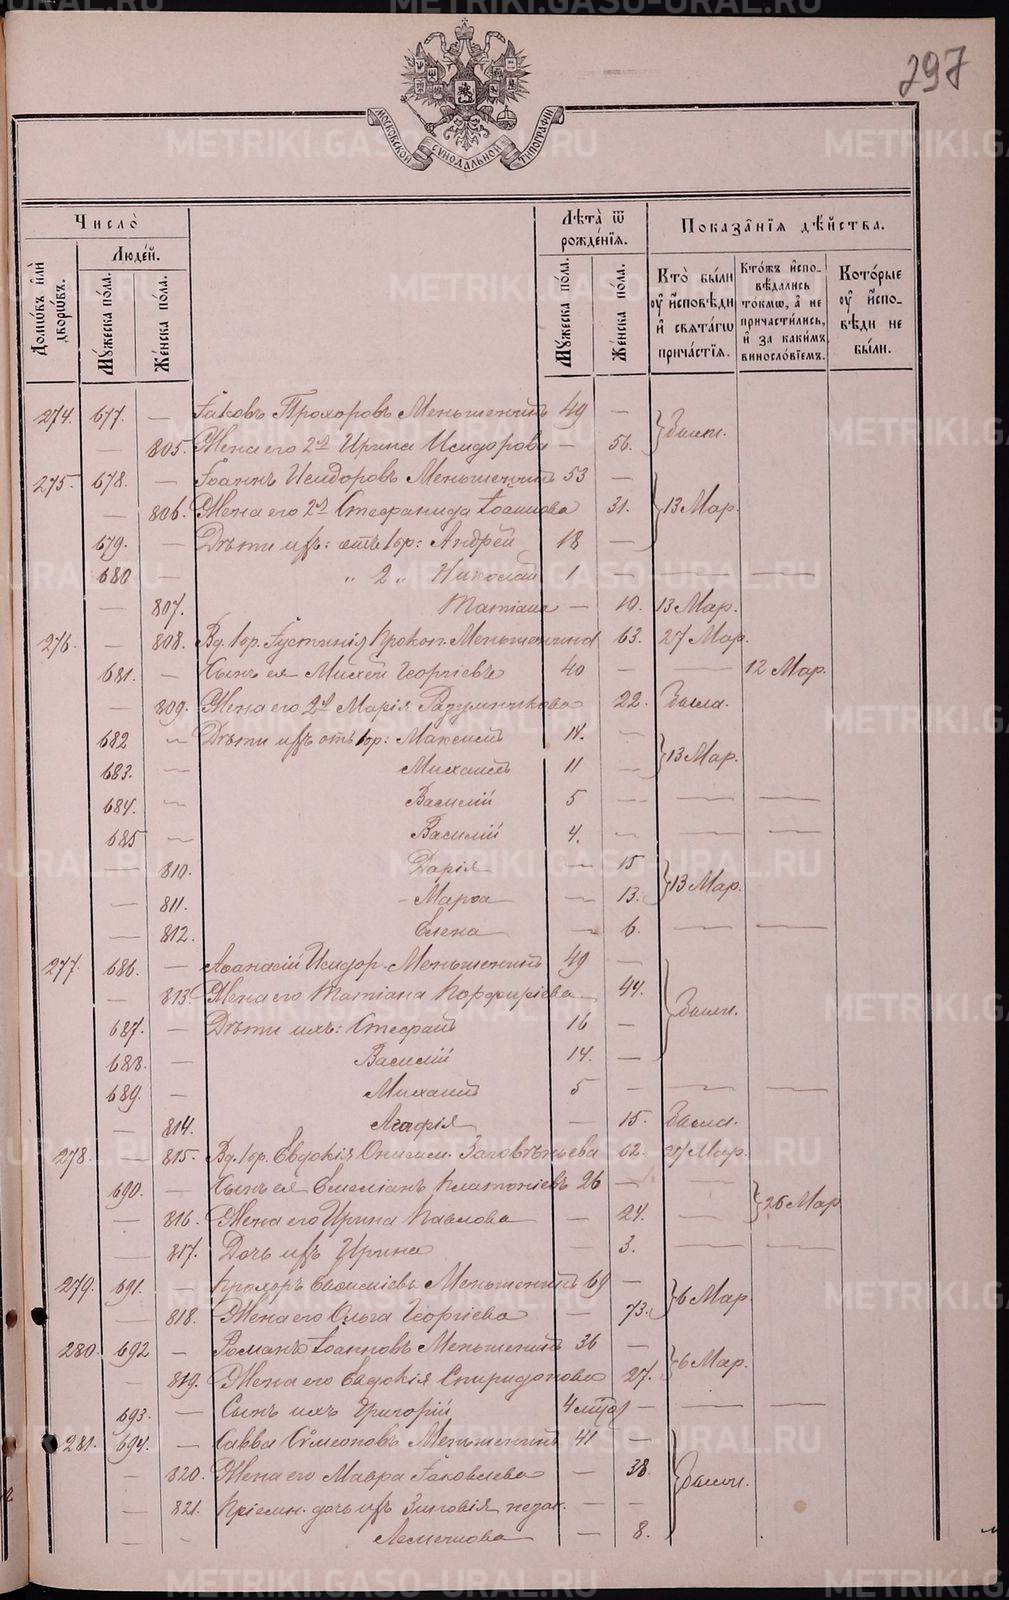 METRIKI.GASO-URAL.RU
297
МОСКОВСКОЙ СѴНОДАЛЬНОЙ ТИПОГРАФІИ
Число̀
Людей.
Домѡвъ и҆лѝ дворѡвъ.
Мꙋжеска по́ла.
Же́нска по́ла.
Лѣ́та ѿ рожде́нїѧ.
Мꙋжеска по́ла.
Же́нска по́ла.
Показа̑нїѧ дѣ́йства.
Кто̀ бы́ли ᲂу҆ и҆сповѣди и҆ свѧта́гѡ прича́стїѧ.
Кто́жъ и҆спо-вѣдались то́кмѡ, а҆ не причасти́лись, и҆ за каки́мъ винослѡ́вїемъ.
Кото́рые ᲂу҆ и҆спо-вѣди не бы́ли.
274. 677. — Іаковъ Прохоровъ Меньшенинъ 49 —
— 805. Жена его 2я Ирина Исидорова — 56. } были.
275. 678. — Іоаннъ Исидоровъ Меньшенинъ 53 —
— 806. Жена его 2я Стефанида Іоаннова 31. } 13 Мар.
679. — Дѣти ихъ: отъ 1 бр: Андрей 18 —
680 — „ 2 „ Николай 1 — — —
— 807. Татіана — 10. 13 Мар.
276. — 808. Вд. 1 бр. Іустинія Прокоп. Меньшенина 63. 27 Мар.
681. — Сынъ ея Михей Георгіевъ 40 — — 12 Мар.
— 809. Жена его 2я Марія Разумникова 22. Была.
682 — Дѣти ихъ отъ 1 бр: Максимъ 14. —
683. — Михаилъ 11 — } 13 Мар.
684. — Василій 5 — — —
685 — Василій 4. — — —
— 810. Дарія — 15
— 811. Марѳа — 13. } 13 Мар.
— 812. Елена — 6. — —
277. 686. — Аѳанасій Исидор. Меньшенинъ 49 —
— 813. Жена его Татіана Порфиріева 44. } Были.
687. — Дѣти ихъ: Стефанъ 16 —
688. — Василій 14. —
689. — Михаилъ 5 — — —
— 814. Агафія — 15. Была.
278 — 815. Вд. 1 бр. Евдокія Онисим. Заговѣньева 62. 27 Мар.
690. — Сынъ ея Емеліанъ Платоніевъ 26 — —
— 816. Жена его Ирина Павлова — 24. — } 26 Мар
— 817. Дочь ихъ Ирина — 3. — —
279. 691. — Прохоръ Евсисіевъ Меньшенинъ 69 —
— 818. Жена его Ольга Георгіева — 73. } 6 Мар.
280. 692 — Романъ Іоанновъ Меньшенинъ 36 —
— 819. Жена его Евдокія Спиридонова 27. } 6 Мар.
693. — Сынъ ихъ Григорій — — —
281. 694. — Савва Сѵмеоновъ Меньшенинъ 41 —
— 820. Жена его Мавра Іаковлева — 38. } были.
— 821. Пріемн. дочь ихъ Зиновія незак. — —
— — — 8.